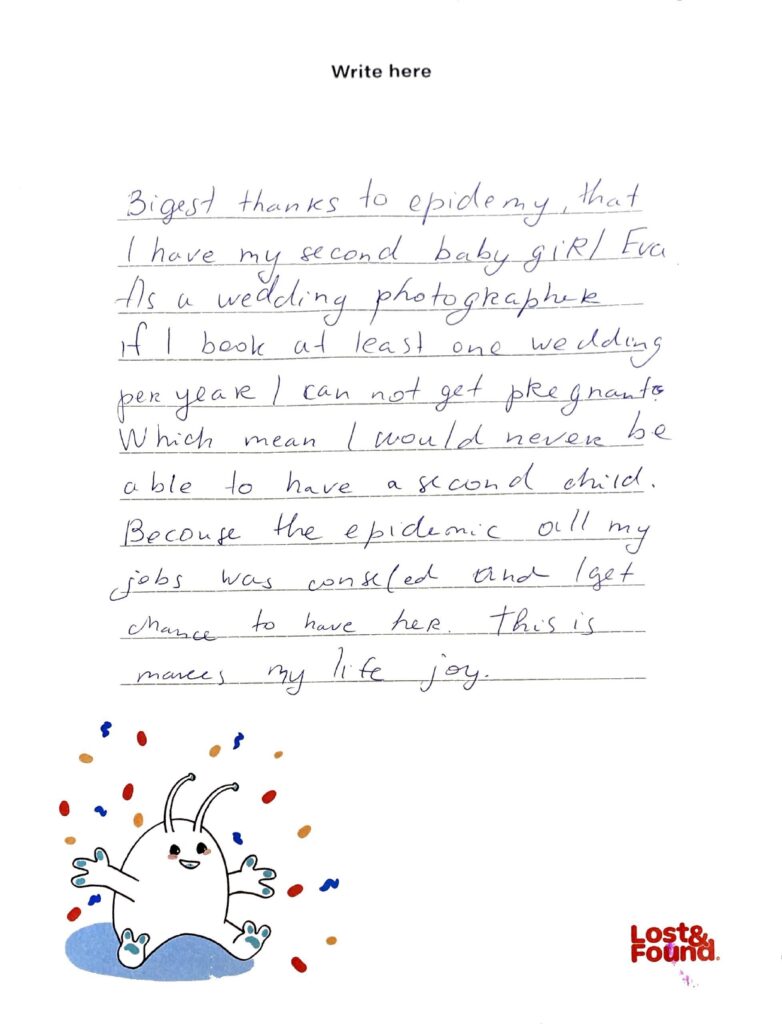 Write here
Bigest thanks to epidemy, that
I have my second baby giRl Eva
As a wedding photographeR
if I book at least one wedding
peR yeaR I can not get pRegnant.
Which mean I would neveR be
able to have a second child.
Becouse the epidemic all my
jobs was conseled and I get
chance to have heR. This is
marees my life joy.
Lost&
Found.